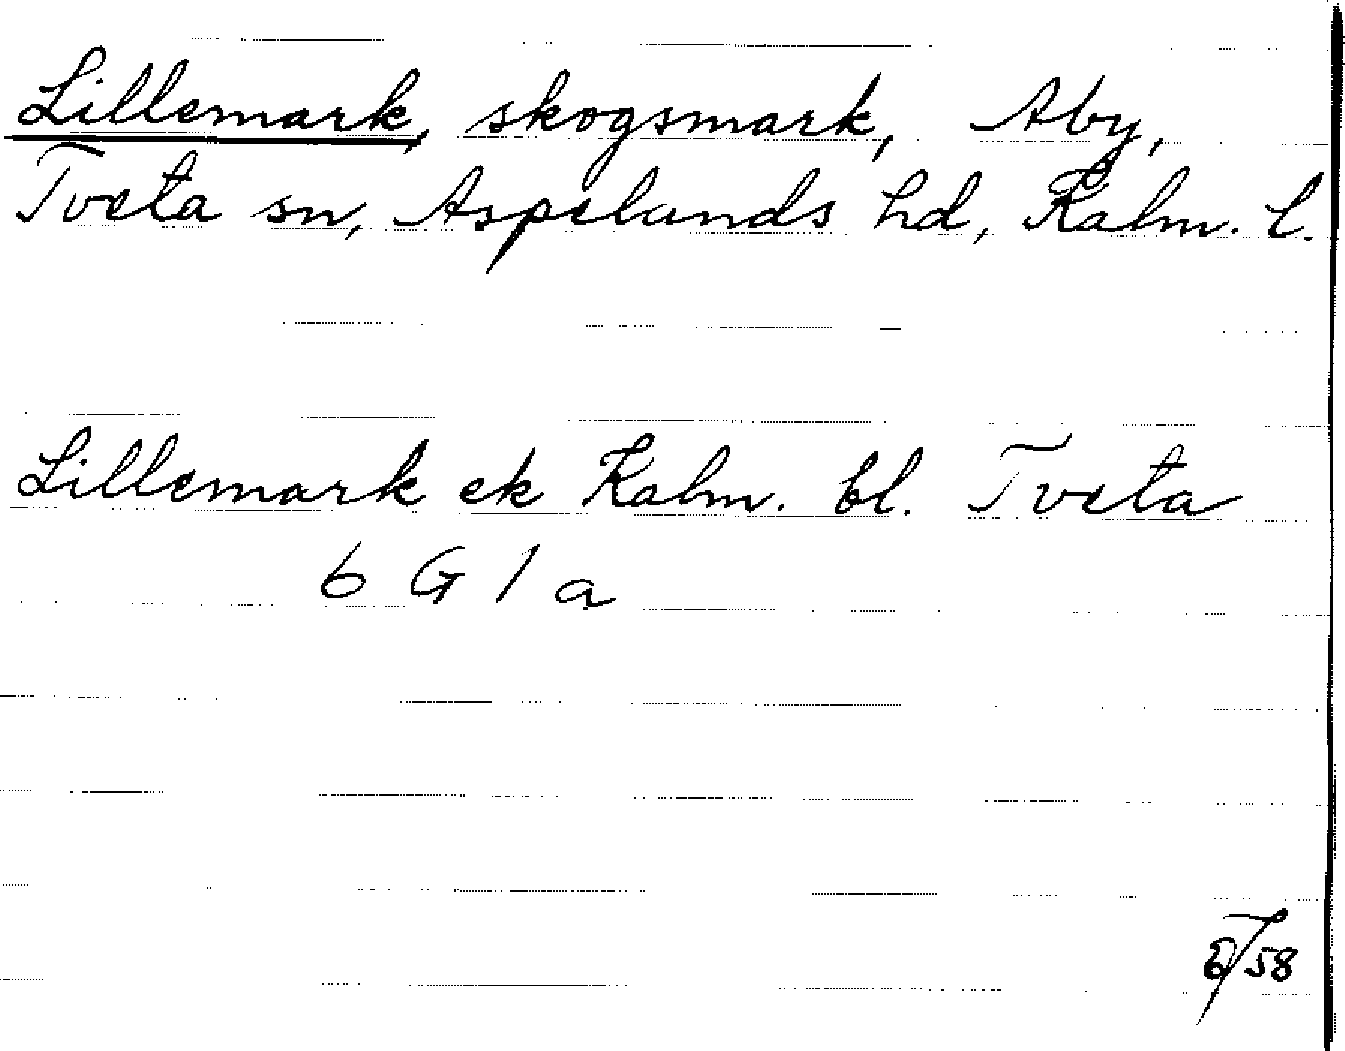 Lillemark, skogsmark, Aby,
Tveta sn, Aspelands hd, Kalm. l.
Lillemark ek Kalm. bl. Tveta
6 G 1 a